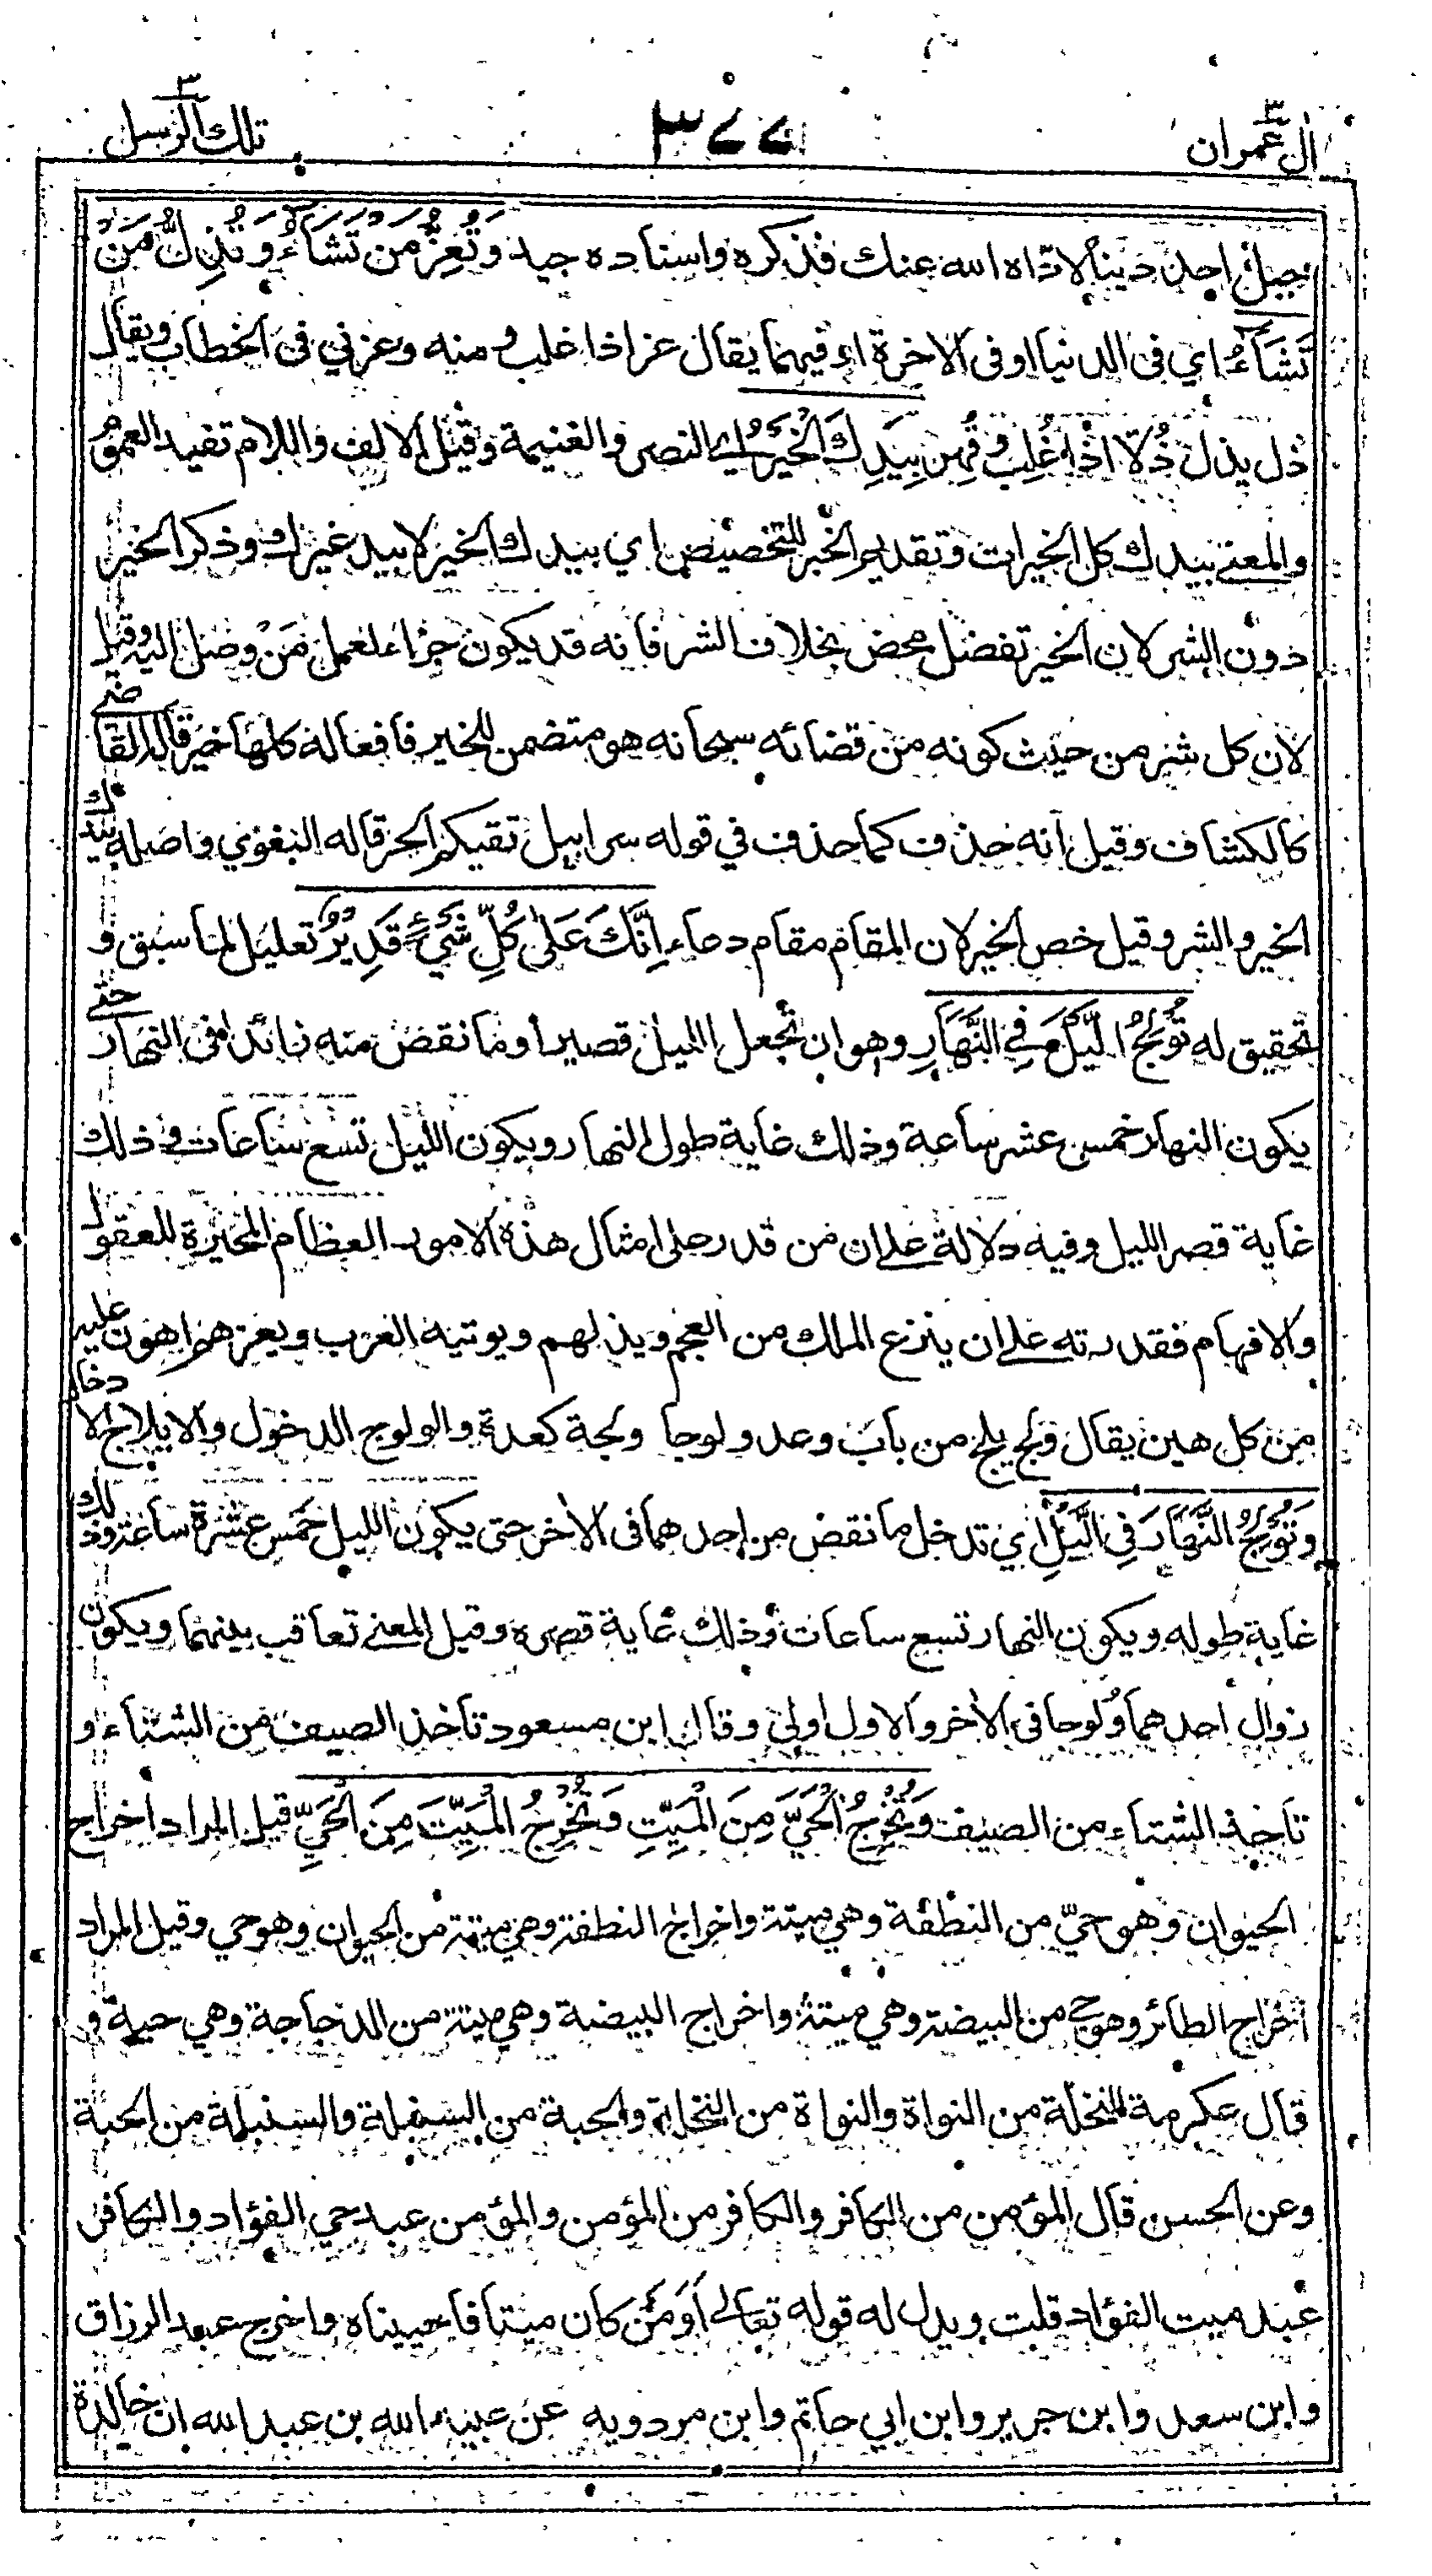 اٰل عمران ٣
٣٧٧
تلك الرسل ٣
جبل احد دينا لادّاه الله عنك فذكره واسناده جيد وَتُعِزُّ مَنْ تَشَاءُ وَتُذِلُّ مَنْ
تَشَاءُ اي فى الدنيا او فى الاخرة او فيهما يقال عز اذا غلب ومنه وعزني فى الخطاب ويقال
ذل يذل ذُلّا اذا غُلِب وقُهِر بِيَدِكَ الْخَيْرُ اي النصر والغنيمة وقيل الالف واللام تفيد العموم
والمعنى بيدك كل الخيرات وتقديم الخبر للتخصيص اي بيدك الخير لا بيد غيرك وذكر الخير
دون الشر لان الخير تفضل محض بخلاف الشر فانه قد يكون جزاء لعمل مَنْ وصل اليه وقيل
لان كل شر من حيث كونه من قضائه سبحانه هو متضمن للخير فافعاله كلها خير قاله القاضي
كالكشاف وقيل انه حذف كما حذف في قوله سرابيل تقيكم الحر قاله البغوي واصله بيدك
الخير والشر وقيل خص الخير لان المقام مقام دعاء اِنَّكَ عَلٰى كُلِّ شَيْءٍ قَدِيْرٌ تعليل لما سبق و
تحقيق له تُوْلِجُ الَّيْلَ فِي النَّهَارِ وهو ان تجعل الليل قصيرا وما نقص منه زائدا فى النهار حتى
يكون النهار خمس عشر ساعة وذلك غاية طول النهار ويكون الليل تسع ساعات وذلك
غاية قصر الليل وفيه دلالة على ان من قدر على امثال هذه الامور العظام المحيرة للعقول
والافهام فقدرته على ان ينزع الملك من العجم ويذلهم ويوتيه العرب ويعزهم اهون عليه
من كل هين يقال ولج يلج من باب وعد ولوجا ولجة كعدة والولوج الدخول والايلاج الادخال
وَتُوْلِجُ النَّهَارَ فِي الَّيْلِ اي تدخل ما نقص من احدهما فى الاٰخر حتى يكون الليل خمس عشرة ساعة وذلك
غاية طوله ويكون النهار تسع ساعات وذلك غاية قصره وقيل المعنى تعاقب بينهما ويكون
زوال احدهما وُلوجا فى الاٰخر والاول اولى وقال ابن مسعود تأخذ الصيف من الشتاء و
تاخذ الشتاء من الصيف وَتُخْرِجُ الْحَيَّ مِنَ الْمَيِّتِ وَتُخْرِجُ الْمَيِّتَ مِنَ الْحَيِّ قيل المراد اخراج
الحيوان وهو حيّ من النطفة وهي ميتة واخراج النطفة وهي ميتة من الحيوان وهو حي وقيل المراد
اخراج الطائر وهو حي من البيضة وهي ميتة واخراج البيضة وهي ميتة من الدجاجة وهي حية و
قال عكرمة النخلة من النواة والنواة من النخلة والحبة من السنبلة والسنبلة من الحبة
وعن الحسن قال المؤمن من الكافر والكافر من المؤمن والمؤمن عبد حي الفؤاد والكافر
عبد ميت الفؤاد قلت ويدل له قوله تعالى اَوَمَنْ كان ميتا فاحييناه واخرج عبد الرزاق
وابن سعد وابن جرير وابن ابي حاتم وابن مردويه عن عبيد الله بن عبد الله ان خالدة